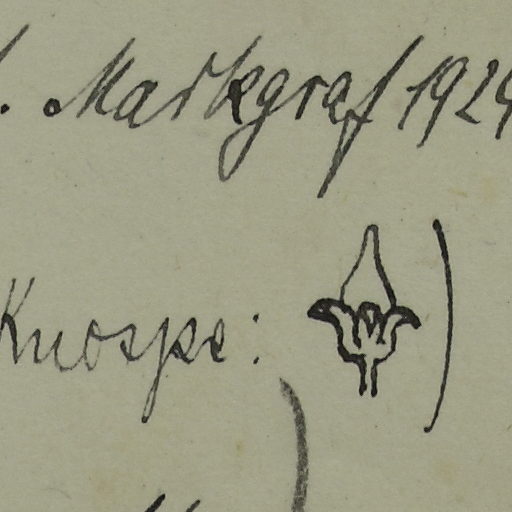 . Markgraf 192
Knospe: )